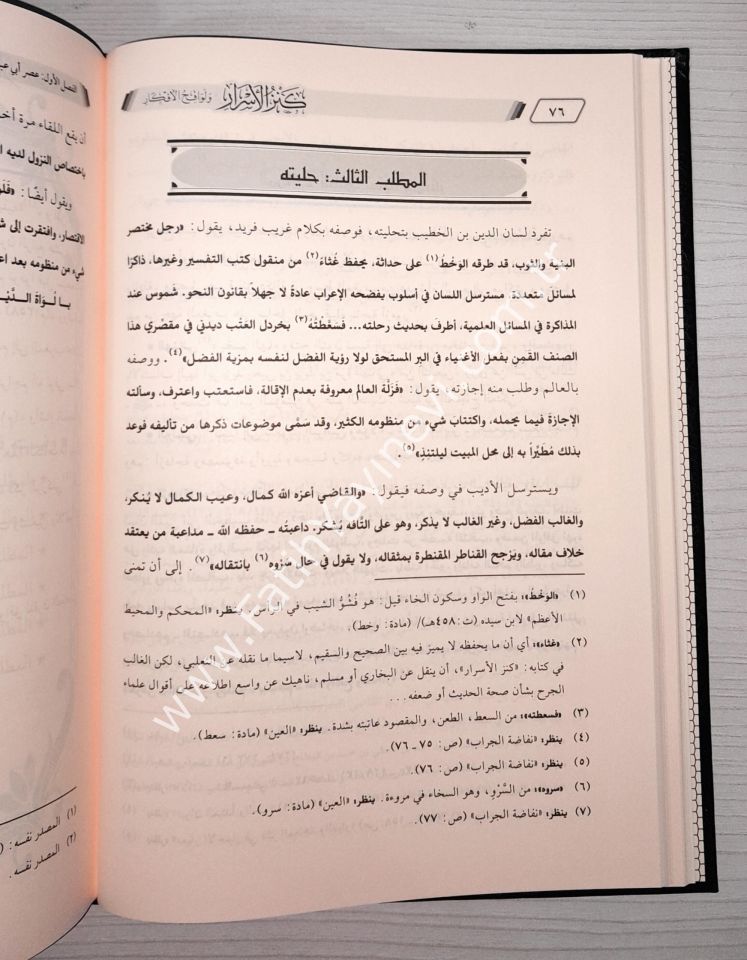 ٧٦
كنز الأسرار ولوافح الأفكار
المطلب الثالث: حليته
تفرد لسان الدين بن الخطيب بتحليته، فوصفه بكلام غريب فريد، يقول: «رجل مختصر
البنية والثوب، قد طرقه الوَخْطُ(١) على حداثة، يحفظ غُثاءً(٢) من منقول كتب التفسير وغيرها، ذاكرًا
لمسائل متعددة، مسترسل اللسان في أسلوب يفضحه الإعراب عادةً لا جهلاً بقانون النحو. شموس عند
المذاكرة في المسائل العلمية، أطرفَ بحديث رحلته... فَسَعَطْتُهُ(٣) بخردل العَتْب ديدني في مقصِّري هذا
الصنف القَمِن بفعل الأغنياء في البر المستحق لولا رؤية الفضل لنفسه بمزية الفضل»(٤). ووصفه
بالعالم وطلب منه إجازته، يقول: «فَزَلَّة العالم معروفة بعدم الإقالة، فاستعتب واعترف، وسألته
الإجازة فيما يحمله، واكتتابَ شيء من منظومه الكثير، وقد سَمَّى موضوعات ذكرها من تآليفه فوعد
بذلك مُطَيَّرًا به إلى محل المبيت ليلتئذٍ»(٥).
ويسترسل الأديب في وصفه فيقول: «والقاضي أعزه الله كمال، وعيب الكمال لا يُنكر،
والغالب الفضل، وغير الغالب لا يذكر، وهو على التَّافه يُشكر. داعبتُه ـ حفظه الله ـ مداعبة من يعتقد
خلاف مقاله، ويَرْجح القناطر المقنطرة بمثقاله، ولا يقول في حال سَرْوه(٦) بانتقاله»(٧). إلى أن تمنى
(١) «الوَخْطُ»: بفتح الواو وسكون الخاء قيل: هو فُشُوُّ الشيب في الرأس. ينظر: «المحكم والمحيط
الأعظم» لابن سيده (ت:٤٥٨هـ)/ (مادة: وخط).
(٢) «غثاء»: أي أن ما يحفظه لا يميز فيه بين الصحيح والسقيم، لاسيما ما نقله عن الثعلبي، لكن الغالب
في كتابه: «كنز الأسرار»، أن ينقل عن البخاري أو مسلم، ناهيك عن واسع اطلاعه على أقوال علماء
الجرح بشأن صحة الحديث أو ضعفه...
(٣) «فسعطته»: من السعط، الطعن، والمقصود عاتبته بشدة. ينظر: «العين» (مادة: سعط).
(٤) ينظر: «نفاضة الجراب» (ص: ٧٥ ـ ٧٦).
(٥) ينظر: «نفاضة الجراب» (ص: ٧٦).
(٦) «سروه»: من السَّرْوِ، وهو السخاء في مروءة. ينظر: «العين» (مادة: سرو).
(٧) ينظر: «نفاضة الجراب» (ص: ٧٧).
www.FatihYayinevi.com.tr
الفصل الأول: عصر أبي
أن يقع اللقاء مرة
باختصاص النزول لديه
ويقول أيضًا:
الاقتصار، وافتقرت إلى
شيء من منظومه بعد
يا لُوَاةَ
(١) المصدر نفسه:
(٢) المصدر نفسه.